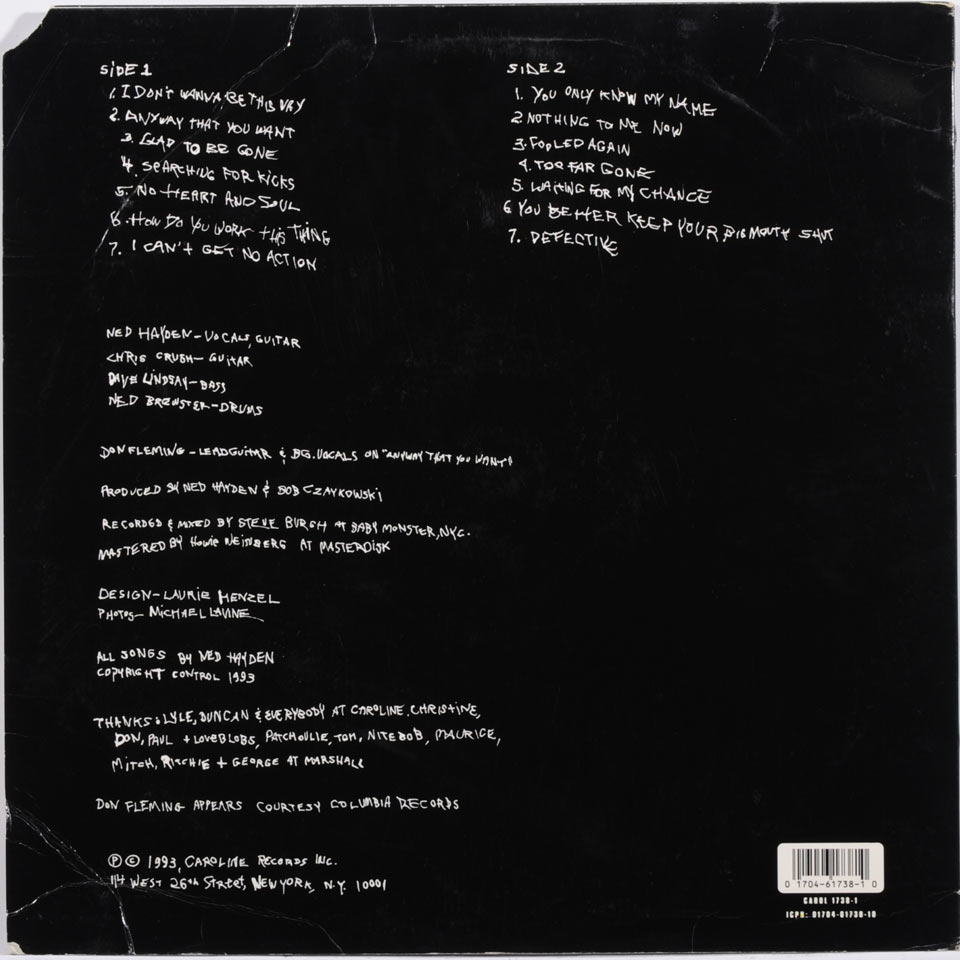 SIDE 1
1. I DON'T WANNA BE THIS WAY
2. ANYWAY THAT YOU WANT
3. GLAD TO BE GONE
4. SEARCHING FOR KICKS
5. NO HEART AND SOUL
6. HOW DO YOU WORK THIS THING
7. I CAN'T GET NO ACTION
SIDE 2
1. YOU ONLY KNOW MY NAME
2. NOTHING TO ME NOW
3. FOOLED AGAIN
4. TOO FAR GONE
5. WAITING FOR MY CHANCE
6 YOU BETTER KEEP YOUR BIG MOUTH SHUT
7. DEFECTIVE
NED HAYDEN - VOCALS, GUITAR
CHRIS CRUSH - GUITAR
DAVE LINDSAY - BASS
NED BREWSTER - DRUMS
DON FLEMING - LEAD GUITAR & BG. VOCALS ON "ANYWAY THAT YOU WANT"
PRODUCED BY NED HAYDEN & BOB CZAYKOWSKI
RECORDED & MIXED BY STEVE BURGH AT BABY MONSTER, NYC.
MASTERED BY HOWIE WEINBERG AT MASTERDISK
DESIGN - LAURIE HENZEL
PHOTOS - MICHAEL LAVINE
ALL SONGS BY NED HAYDEN
COPYRIGHT CONTROL 1993
THANKS: LYLE, DUNCAN & EVERYBODY AT CAROLINE, CHRISTINE,
DON, PAUL + LOVEBLOBS, PATCHOULIE, TOM, NITEBOB, MAURICE,
MITCH, RITCHIE + GEORGE AT MARSHALL
DON FLEMING APPEARS COURTESY COLUMBIA RECORDS
℗ © 1993, CAROLINE RECORDS INC.
114 WEST 26TH STREET, NEW YORK, N.Y. 10001
0 1704-61738-1 0
CAROL 1738-1
ICPN: 01704-61738-10